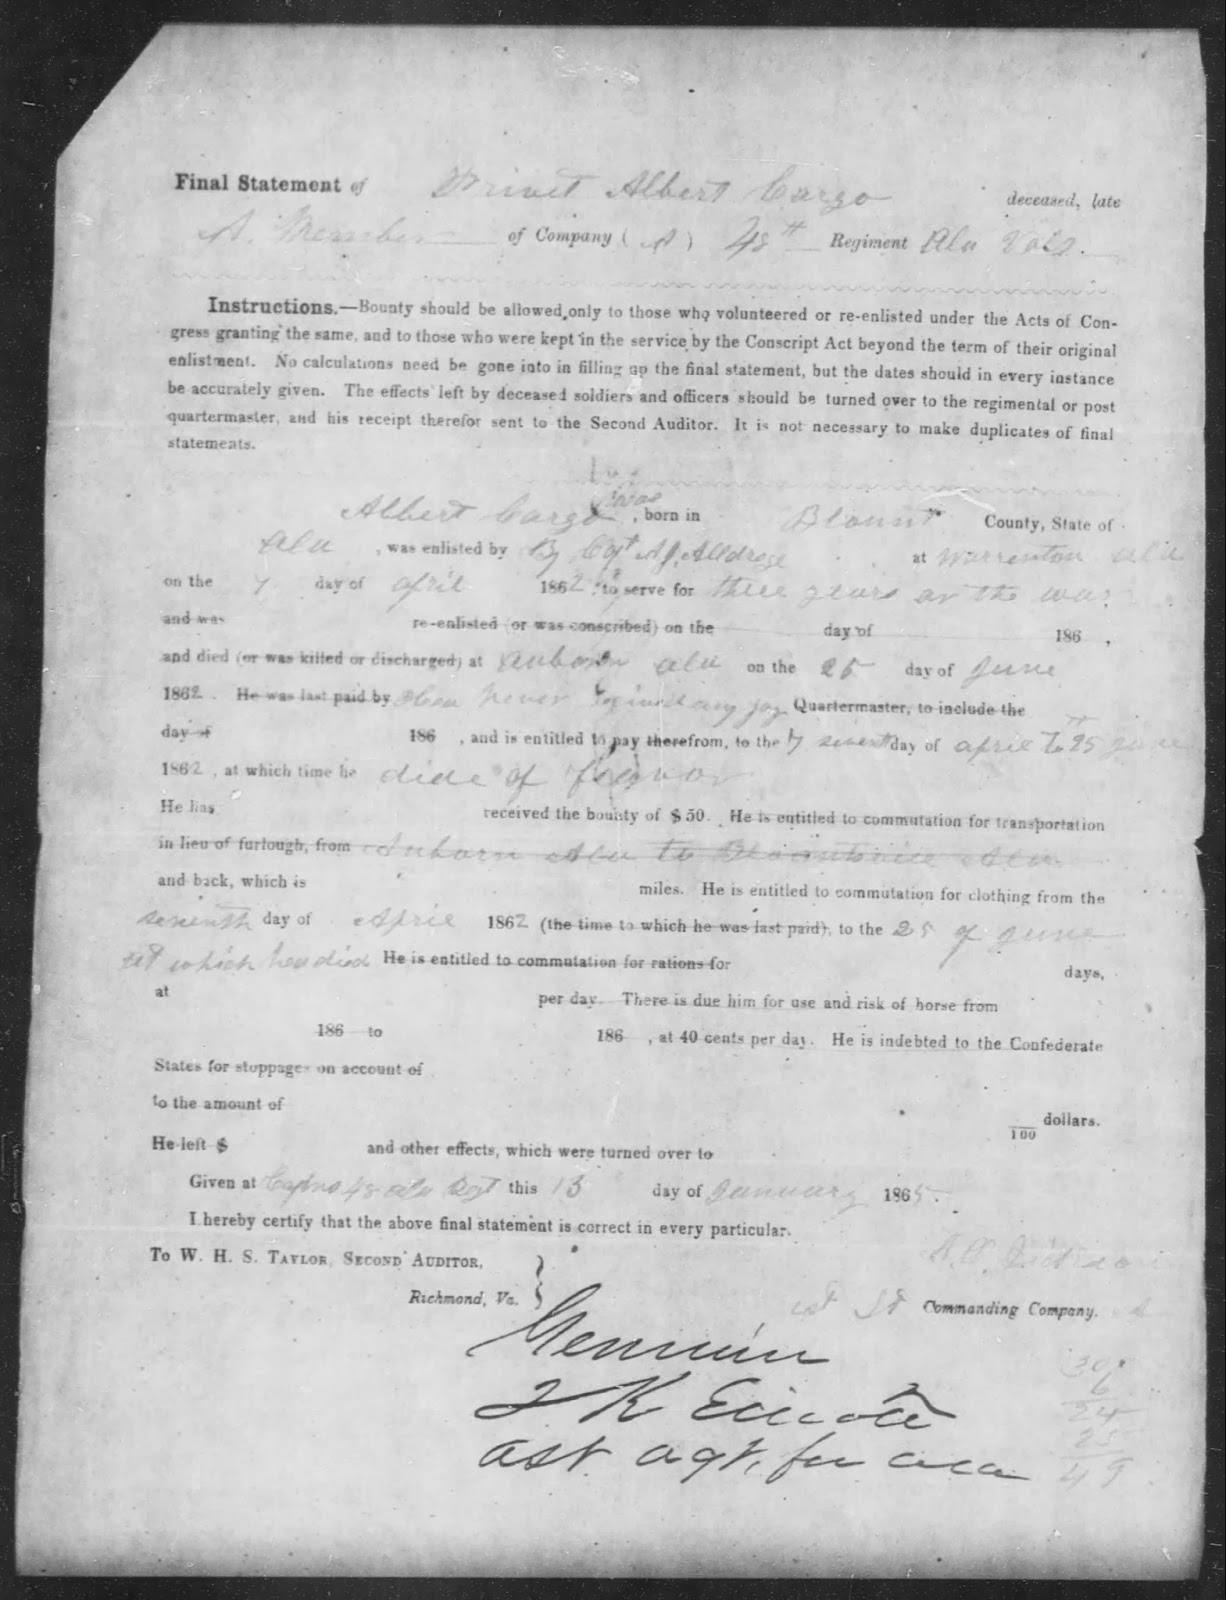 Final Statement of Privet Albert Cargo deceased, late
A. Member of Company ( A ) 48th Regiment Ala Vols.
Instructions.—Bounty should be allowed only to those who volunteered or re-enlisted under the Acts of Con-
gress granting the same, and to those who were kept in the service by the Conscript Act beyond the term of their original
enlistment. No calculations need be gone into in filling up the final statement, but the dates should in every instance
be accurately given. The effects left by deceased soldiers and officers should be turned over to the regimental or post
quartermaster, and his receipt therefor sent to the Second Auditor. It is not necessary to make duplicates of final
statements.
Albert Cargo was, born in Blount County, State of
Ala, was enlisted by By Cpt A J Alldrege at Warrenton Ala
on the 7 day of april 1862, to serve for three years or the war
and was re-enlisted (or was conscribed) on the day of 186 ,
and died (or was killed or discharged) at auborn ala on the 25 day of June
1862. He was last paid by never any pay Quartermaster, to include the
day of 186 , and is entitled to pay therefrom, to the 7 day of april to 25 June
1862, at which time he dide of
He has received the bounty of $50. He is entitled to commutation for transportation
in lieu of furlough, from Auborn Ala to Ala
and back, which is miles. He is entitled to commutation for clothing from the
seventh day of April 1862 (the time to which he was last paid), to the 25 of June
at which he died He is entitled to commutation for rations for days,
at per day. There is due him for use and risk of horse from
186 to 186 , at 40 cents per day. He is indebted to the Confederate
States for stoppages on account of
to the amount of 100 dollars.
He left $ and other effects, which were turned over to
Given at 48 ala Regt this 13 day of January 1865.
I hereby certify that the above final statement is correct in every particular.
To W. H. S. Taylor, Second Auditor,
Richmond, Va.
Commanding Company.
30
6
24
25
49